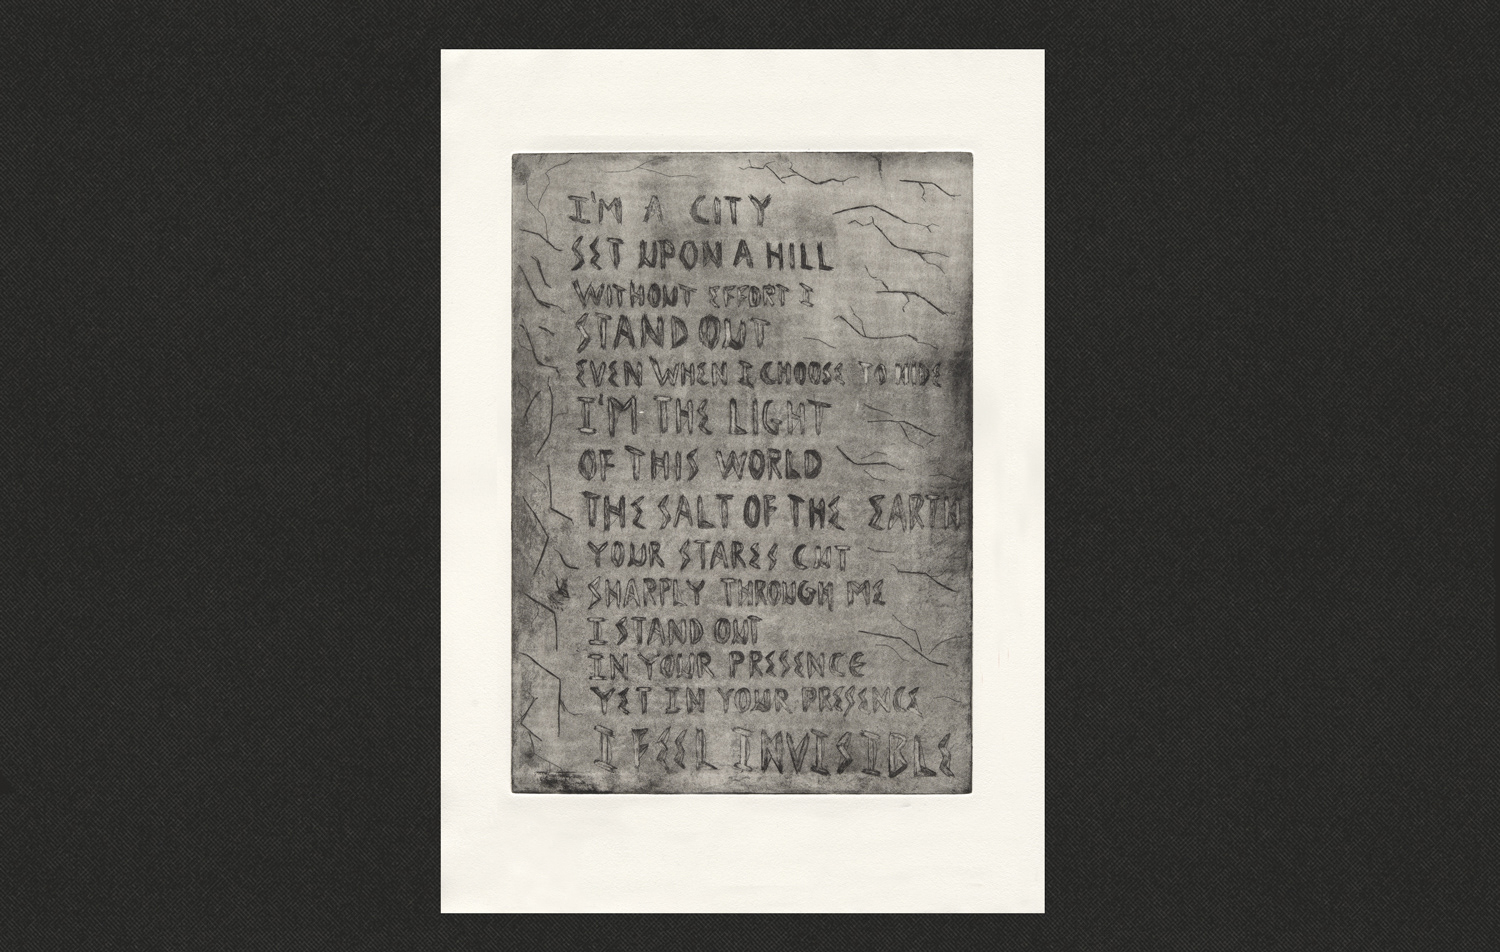 I'M A CITY
SET UPON A HILL
WITHOUT EFFORT I
STAND OUT
EVEN WHEN I CHOOSE TO HIDE
I'M THE LIGHT
OF THIS WORLD
THE SALT OF THE EARTH
YOUR STARES CUT
SHARPLY THROUGH ME
I STAND OUT
IN YOUR PRESENCE
YET IN YOUR PRESENCE
I FEEL INVISIBLE